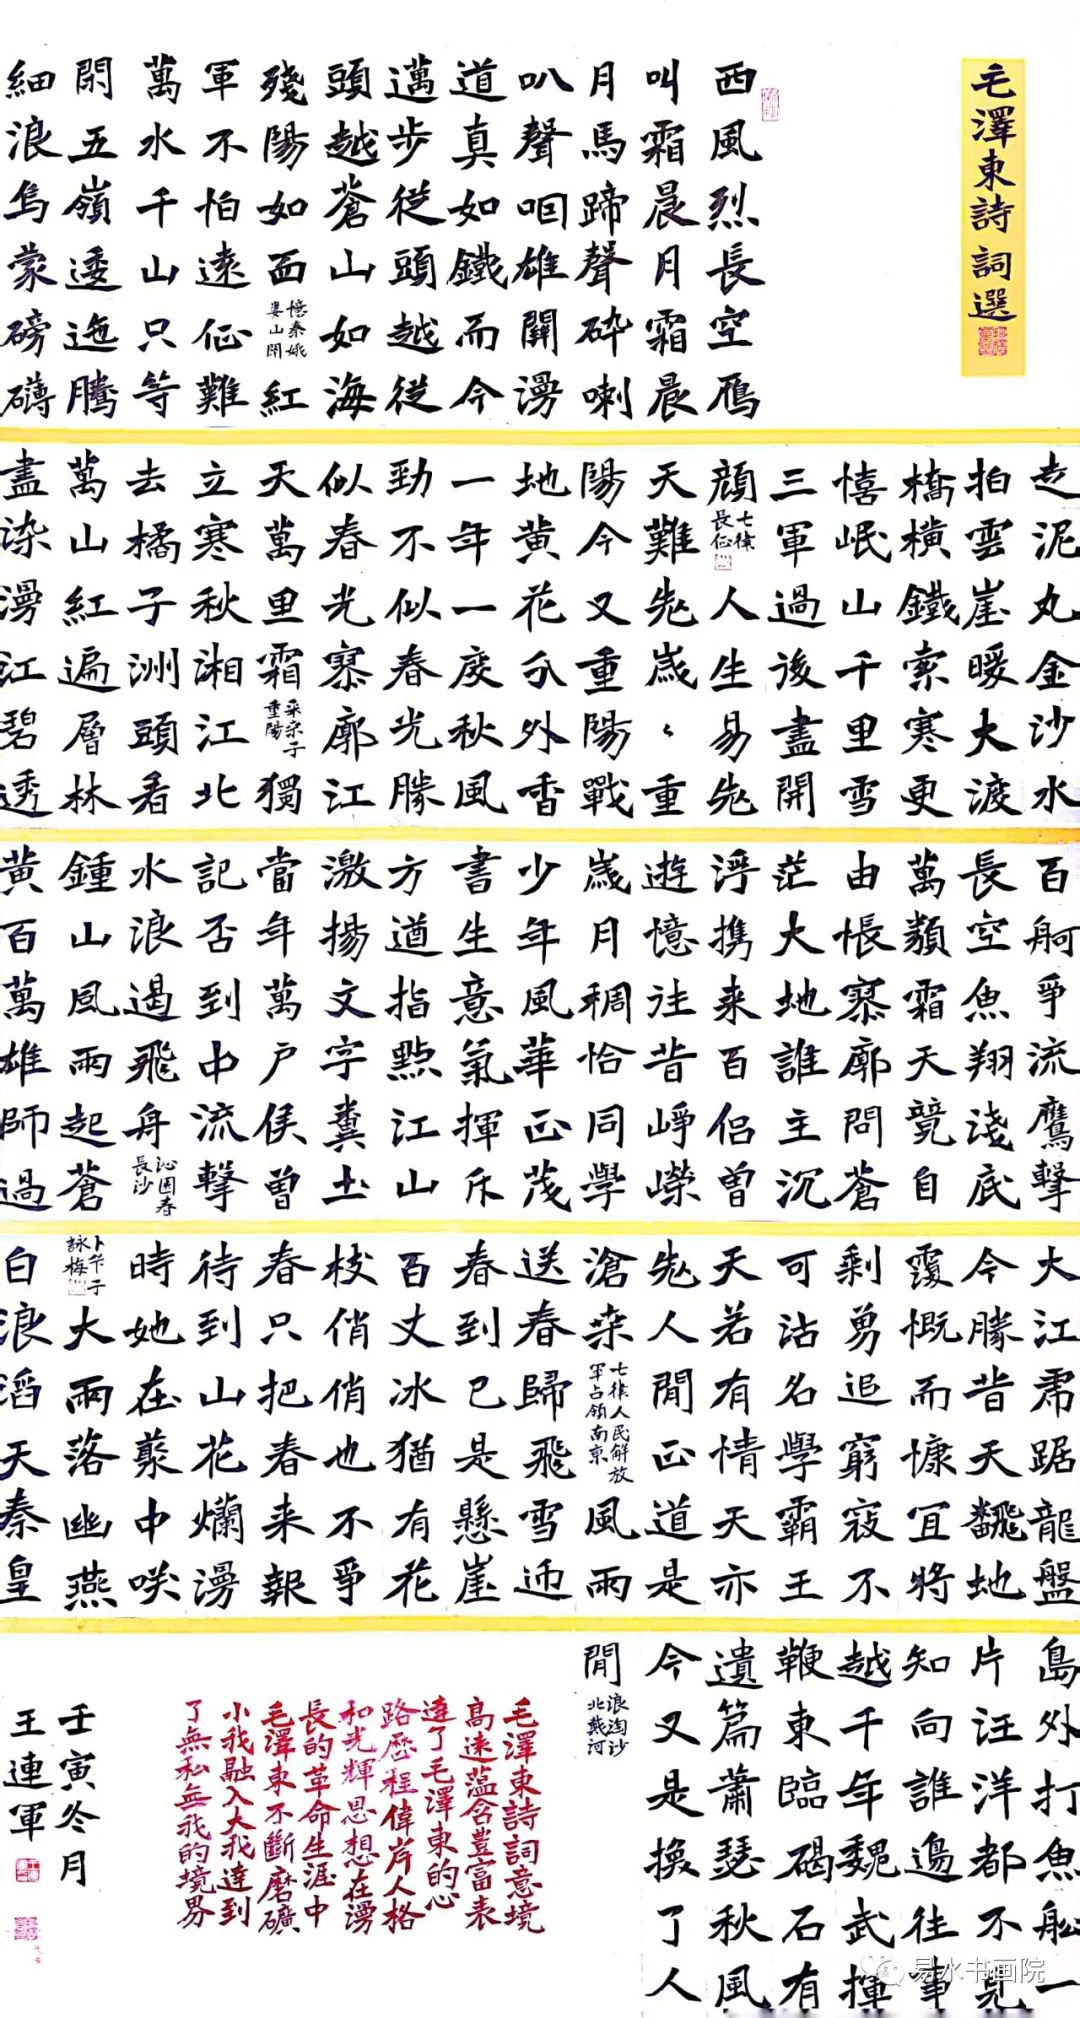 毛澤東詩詞選
西風烈長空雁
叫霜晨月霜晨
月馬蹄聲碎喇
叭聲咽雄關漫
道真如鐵而今
邁步從頭越從
頭越蒼山如海
殘陽如血
憶秦娥
婁山關
紅
軍不怕遠征難
萬水千山只等
閑五嶺逶迤騰
細浪烏蒙磅礴
走泥丸金沙水
拍雲崖暖大渡
橋橫鐵索寒更
憘岷山千里雪
三軍過後盡開
顏
七律
長征
人生易老
天難老歲〻重
陽今又重陽戰
地黃花分外香
一年一度秋風
勁不似春光勝
似春光寥廓江
天萬里霜
采桑子
重陽
獨
立寒秋湘江北
去橘子洲頭看
萬山紅遍層林
盡染漫江碧透
百舸爭流鷹擊
長空魚翔淺底
萬類霜天競自
由悵寥廓問蒼
茫大地誰主沉
浮携来百侶曾
遊憶往昔崢嶸
歲月稠恰同學
少年風華正茂
書生意氣揮斥
方遒指點江山
激揚文字糞土
當年萬户侯曾
記否到中流擊
水浪遏飛舟
沁園春
長沙
鍾山風雨起蒼
黃百萬雄師過
大江虎踞龍盤
今勝昔天翻地
覆慨而慷宜將
剩勇追窮寇不
可沽名學霸王
天若有情天亦
老人間正道是
滄桑
七律人民解放
軍占領南京
風雨
送春歸飛雪迎
春到已是懸崖
百丈冰猶有花
枝俏俏也不爭
春只把春来報
待到山花爛漫
時她在叢中笑
卜算子
詠梅
大雨落幽燕
白浪滔天秦皇
島外打魚船一
片汪洋都不見
知向誰邊往事
越千年魏武揮
鞭東臨碣石有
遺篇蕭瑟秋風
今又是換了人
間
浪淘沙
北戴河
毛澤東詩詞意境
高遠蘊含豐富表
達了毛澤東的心
路歷程偉岸人格
和光輝思想在漫
長的革命生涯中
毛澤東不斷磨礪
小我融入大我達到
了無私無我的境界
壬寅冬月
王連軍
易水书画院